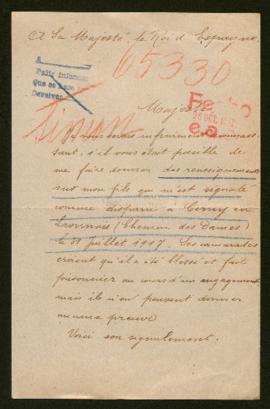 A Sa Majesté le Roi d'Espagne
65330
Majesté
Simon
sant, s'il vous était possible de
me faire donner des renseignements
sur mon fils qui m'est signalé
comme disparu à Cerny en
Laonnois (Chemin des Dames)
le 31 Juillet 1917. Ses camarades
croient qu'il a été blessé et fait
prisonnier au cours d'un engagement
mais ils n'en peuvent donner
aucune preuve
Voici son signalement.